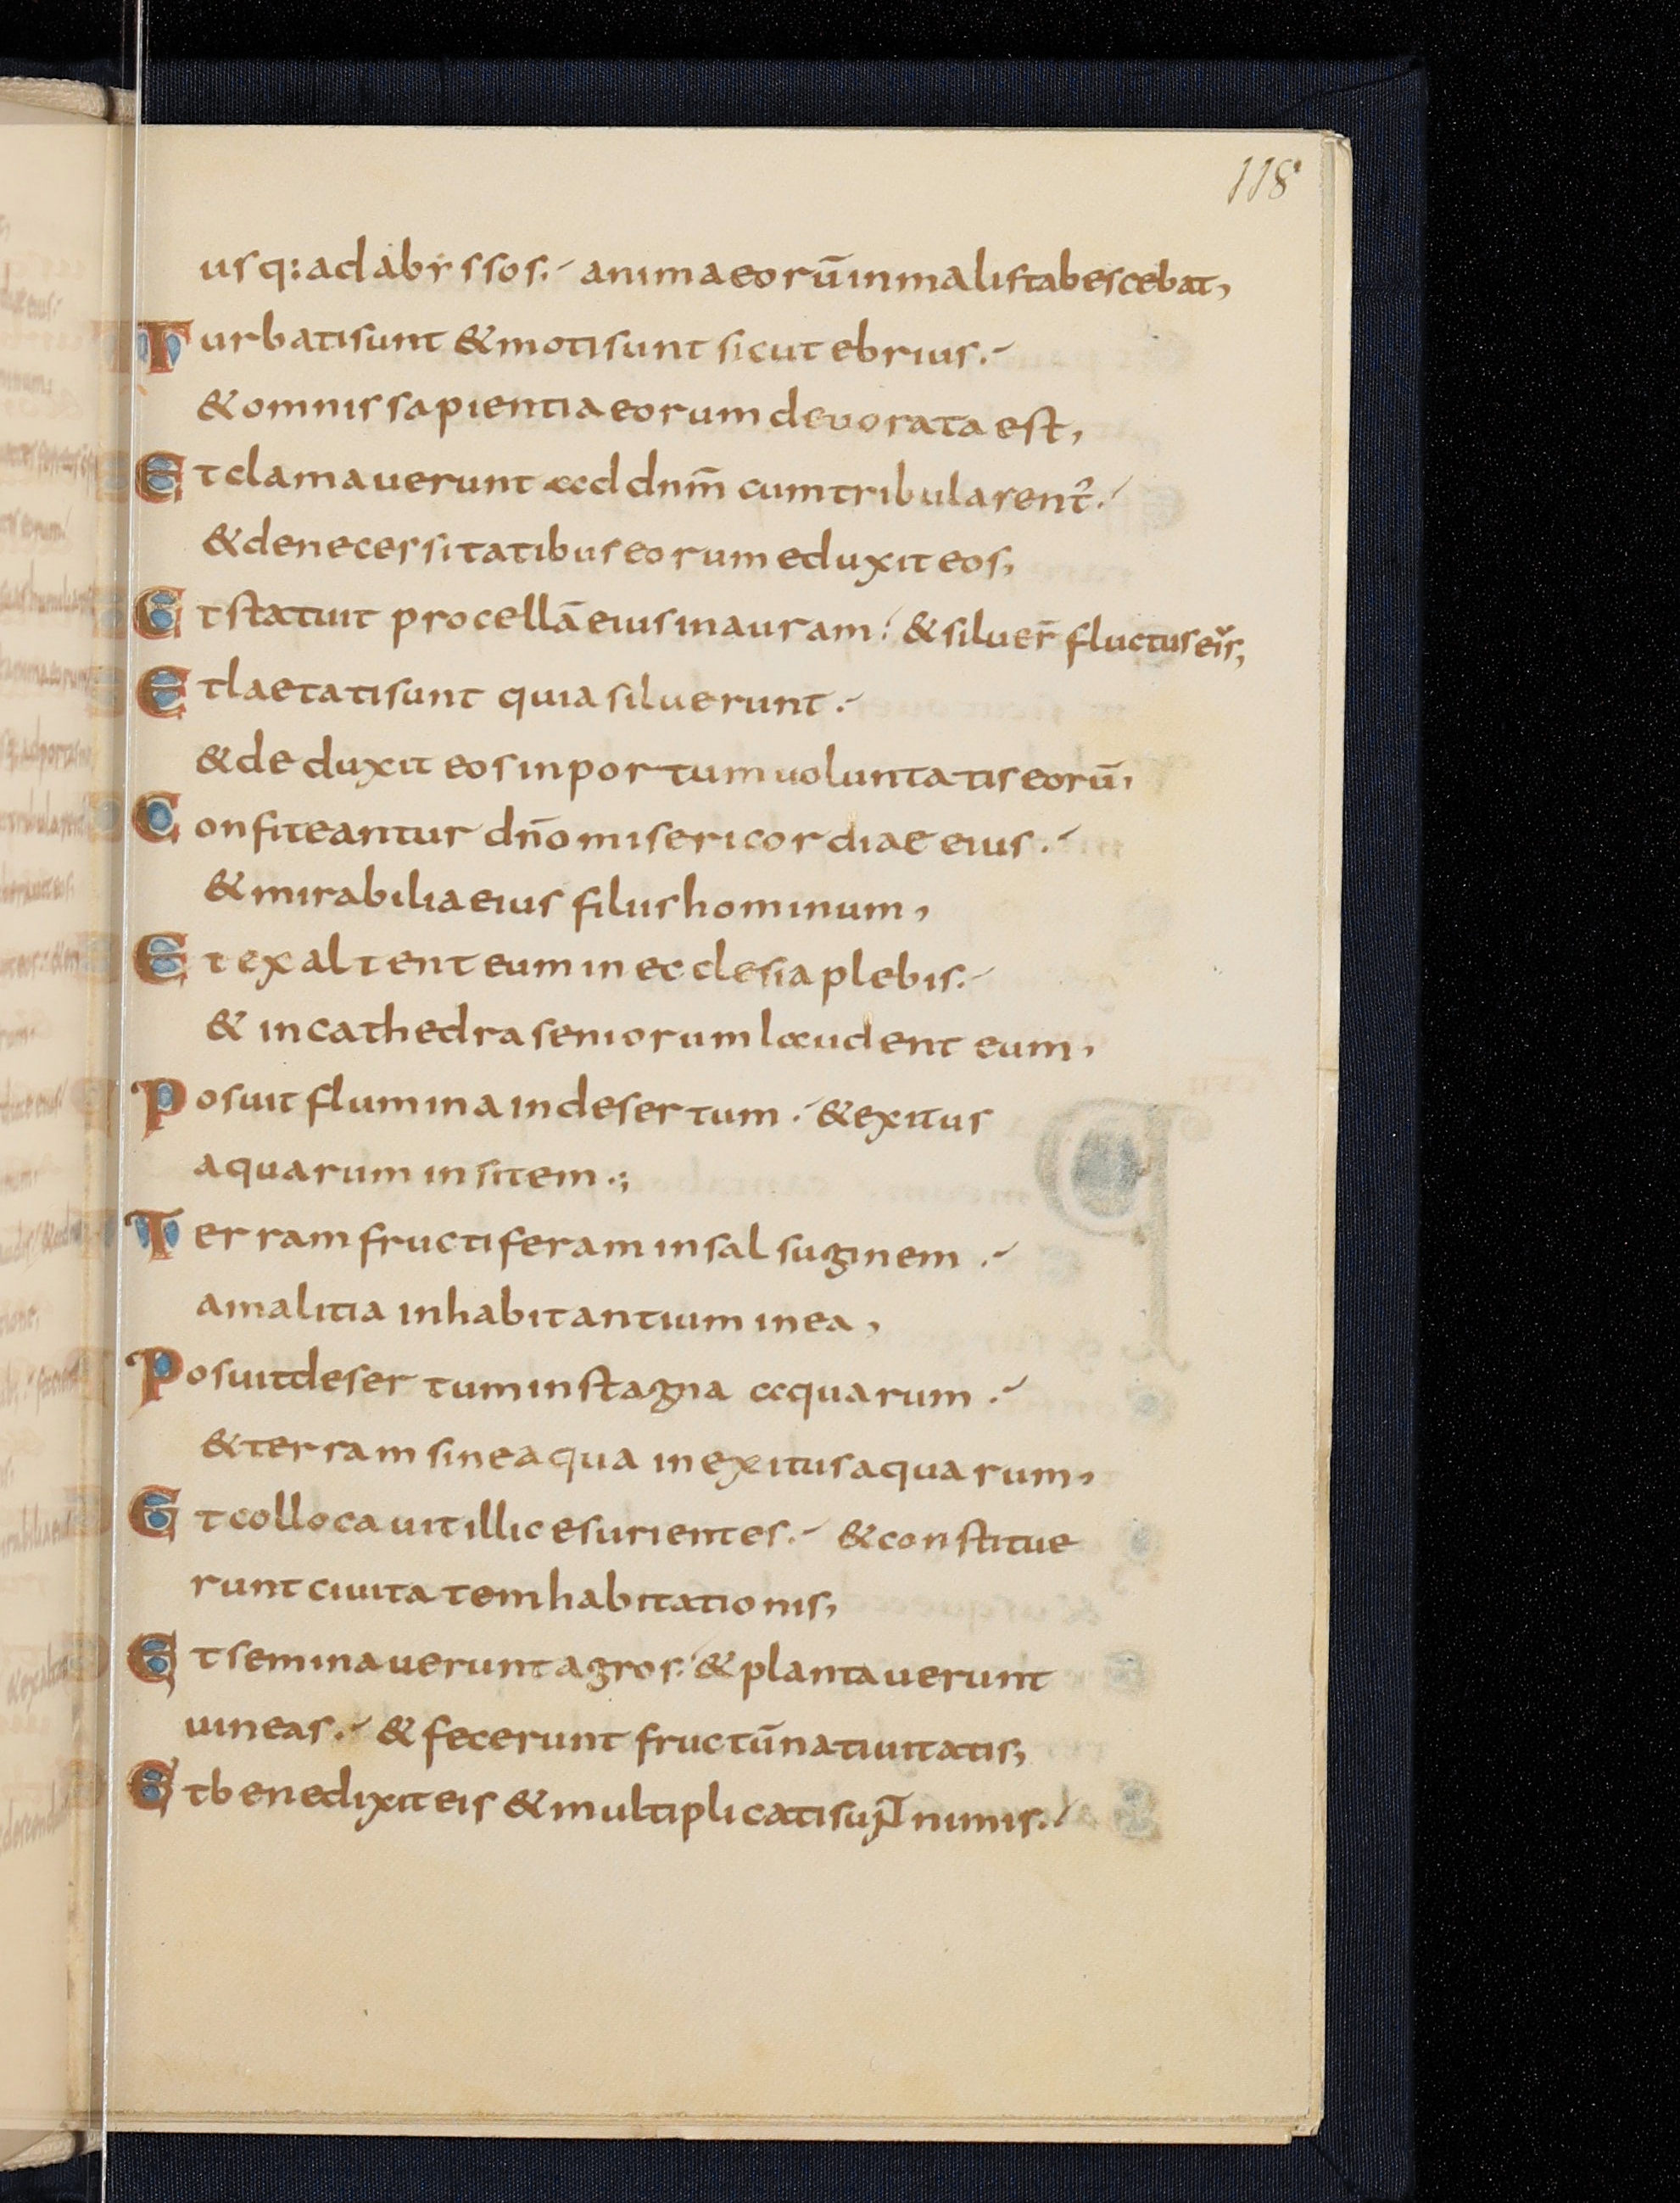 118
usq: ad abyssos:- anima eorū in malis tabescebat,
Turbati sunt & moti sunt sicut ebrius.-
& omnis sapientia eorum devorata est,
Et clamaverunt ad dnm̄ cum tribularent̄.-
& de necessitatibus eorum eduxit eos,
Et statuit procellā eius in auram:- & siluer̄ fluctus eis,
Et laetati sunt quia siluerunt.-
& deduxit eos in portum uoluntatis eorū,
Confiteantur dn̄o misericordiae eius.-
& mirabilia eius filiis hominum,
Et exaltent eum in ecclesia plebis.-
& in cathedra seniorum laudent eum,
Posuit flumina in desertum.- & exitus
aquarum in sitem.;
Terram fructiferam in salsuginem.-
a malitia inhabitantium in ea,
Posuit desertum in stagna aquarum.-
& terram sine aqua in exitus aquarum,
Et collocauit illic esurientes.- & constitue
runt ciuitatem habitationis,
Et seminauerunt agros:- & plantauerunt
uineas.- & fecerunt fructū natiuitatis,
Et benedixit eis & multiplicati sunt nimis.-